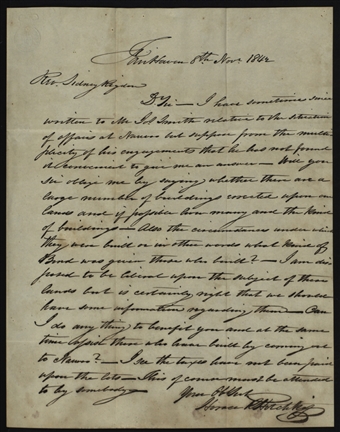 Fair Haven 8th Nov. 1842
Rev. Sidney Rigdon
Dr Sir — I have sometime since
written to Mr Jos Smith relative to the situation
of affairs at Nauvoo but suppose from the multi
plicity of his engagements that he has not found
it convenient to give me an answer — Will you
sir oblige me by saying whether there are a
large number of buildings erected upon our
lands and if possible how many and the kind
of buildings — Also the circumstances under which
they were build or in other words what kind of
Bond was given those who build? — I am dis
posed to be liberal upon the subject of these
lands but it certainly right that we should
have some information regarding them — Can
I do any thing to benefit you and at the same
time those who have built by coming out
to Nauvoo? — I see the taxes have not been paid
upon the lots — This of course must be attended
to by somebody —
Your Obt Svt
Horace R Hotchkiss